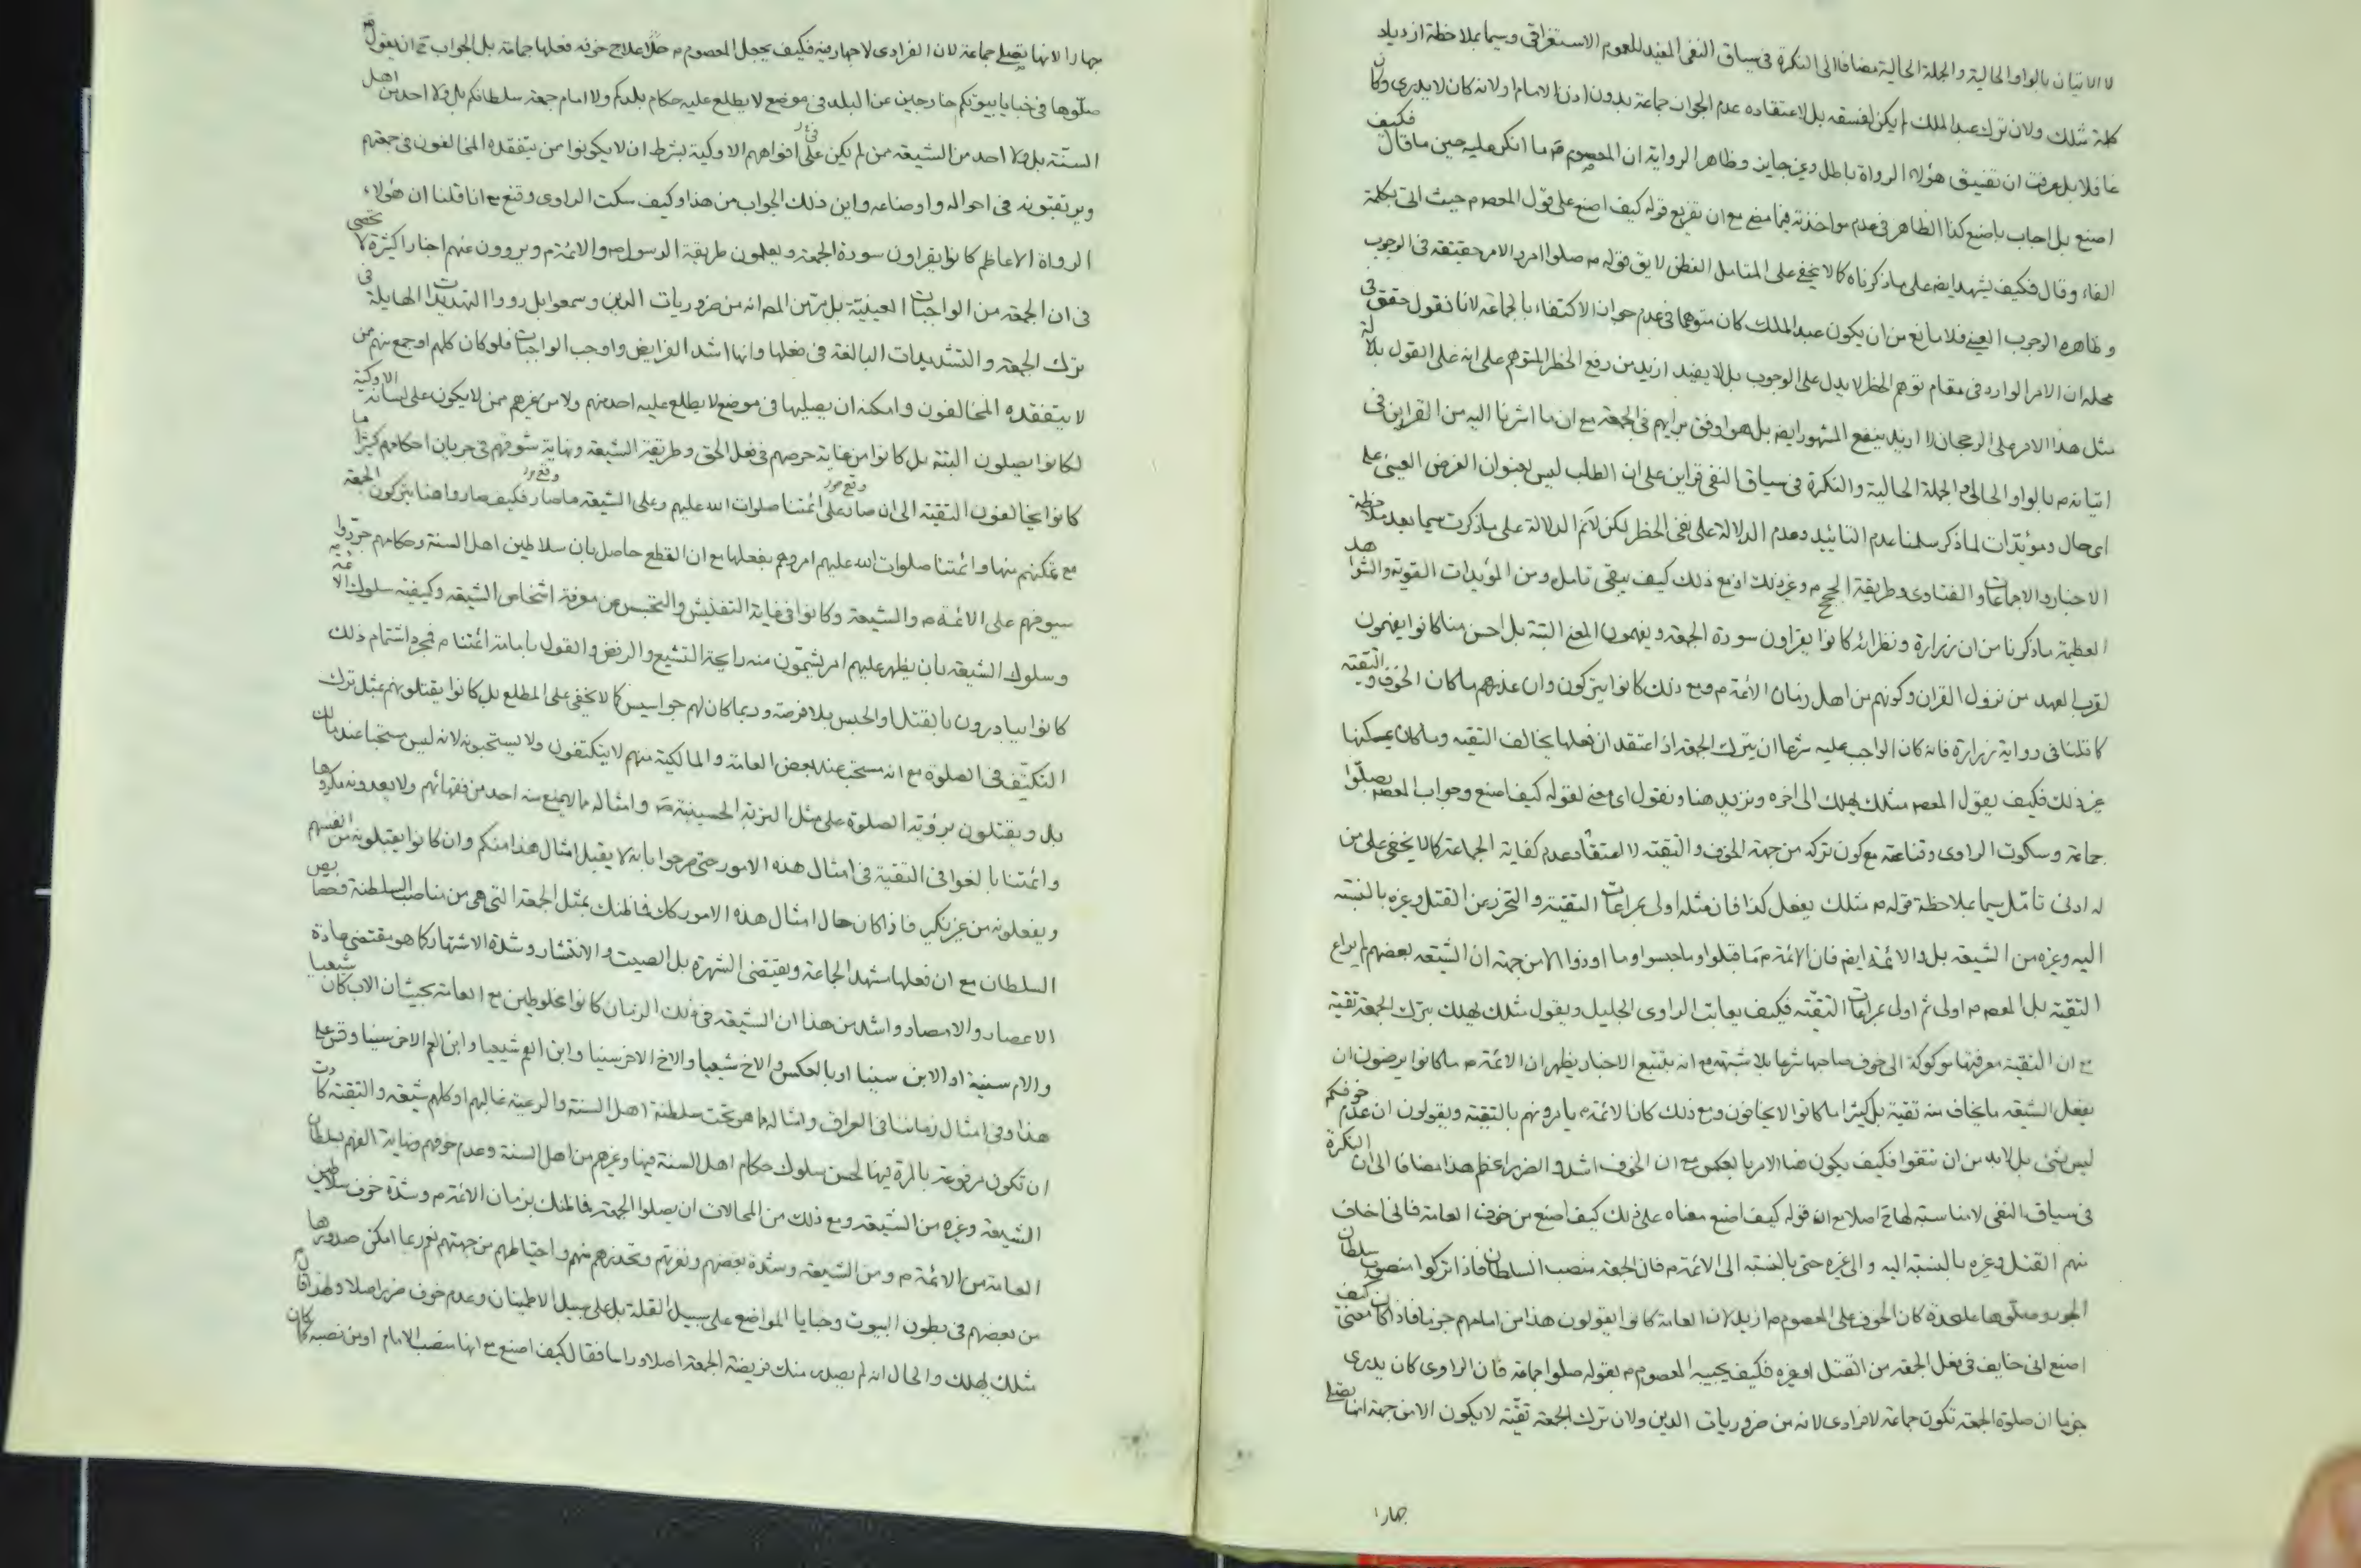 لا الاتيان بالواو الحالية والجملة الحالية مضافا الى النكرة فى سياق النفى المفيد للعموم الاستغراقى وسيما بملاحظة ازدياد
كلمة مثلك ولان ترك عبد الملك لم يكن لفسقه بل لاعتقاده عدم الجواز جماعة بدون اذن الامام او لانه كان لا يدرى وكان
غافلا بل عرفت ان تفسيق هؤلاء الرواة باطل وغير جايز وظاهر الرواية ان المعصوم م ما انكر عليه حين ما قال فكيف
اصنع بل اجاب باصنع كذا الظاهر فى عدم مواخذته فيما مضى مع ان تفريع قوله كيف اصنع على قول المعصوم حيث اتى بكلمة
الفاء وقال فكيف يشهد ايضا على ما ذكرناه كما لا يخفى على المتامل الفطن لا يق قوله م صلوا امر والامر حقيقة فى الوجوب
وظاهره الوجوب العينى فلا مانع من ان يكون عبد الملك كان متوهما فى عدم جواز الاكتفاء بالجماعة لانا نقول حقق فى
محله ان الامر الوارد فى مقام توهم الحظر لا يدل على الوجوب بل لا يفيد ازيد من رفع الحظر المتوهم على انه على القول بدلالة
مثل هذا الامر على الرجحان لا ازيد ينفع المشهور ايضا بل هو اوفق برايهم فى الجمعة مع ان ما اشرنا اليه من القراين فى
اتيانه م بالواو الحالى و الجملة الحالية والنكرة فى سياق النفى قراين على ان الطلب ليس بعنوان الفرض العينى على
اى حال ومؤيدات لما ذكر سلمنا عدم التاييد وعدم الدلالة على نفى الحظر لكن لا نم الدلالة على ما ذكرت سيما بعد ملاحظة
الاخبار والاجماعات والفتاوى وطريقة الحجج م وغير ذلك اذ مع ذلك كيف يبقى تامل ومن المؤيدات القوية والشواهد
العظيمة ما ذكرنا من ان زرارة ونظرائه كانوا يقراون سورة الجمعة ويفهمون المعنى البتة بل احسن منا كانوا يفهمون
لقرب العهد من نزول القران وكونهم من اهل زمان الائمة م ومع ذلك كانوا يتركون وان عذرهم ما كان الخوف والتقية
كما قلنا فى رواية زرارة فانه كان الواجب عليه شرعا ان يترك الجمعة اذا اعتقد ان فعلها يخالف التقية وما كان يمكنها
غير ذلك فكيف يقول المعصم مثلك يهلك الى اخره ونزيد هنا ونقول اى معنى لقوله كيف اصنع وجواب المعصم يصلوا
جماعة وسكوت الراوى وقناعته مع كون تركه من جهة الخوف والتقية لا اعتقاد عدم كفاية الجماعة كما لا يخفى على من
له ادنى تامل سيما بملاحظة قوله م مثلك يفعل كذا فان مثله اولى بمراعات التقية والتحرز عن القتل وغيره بالنسبة
اليه وغيره من الشيعة بل والائمة ايضا فان الائمة م ما قتلوا وما حبسوا وما اوذوا الا من جهة ان الشيعة بعضهم لم يراع
التقية بل المعصوم م اولى ثم اولى بمراعات التقية فكيف يعاتب الراوى الجليل ويقول مثلك يهلك بترك الجمعة تقية
مع ان التقية معرفتها موكولة الى خوف صاحبها شرعا بلا شبهة مع انه بتتبع الاخبار يظهر ان الائمة م ما كانوا يرضون ان
يفعل الشيعة ما يخاف منه تقية بل كثيرا ما كانوا لا يخافون ومع ذلك كان الائمة م يامرونهم بالتقية ويقولون ان عدم خوفكم
ليس بشئ بل لابد من ان تتقوا فكيف يكون هنا الامر بالعكس مع ان الخوف اشد والضرر اعظم هذا مضافا الى ان النكرة
فى سياق النفى لا مناسبة لها ح اصلا مع ان قوله كيف اصنع معناه على ذلك كيف اصنع من خوف العامة فانى اخاف
منهم القتل وغيره بالنسبة اليه والى غيره حتى بالنسبة الى الائمة م فان الجمعة منصب السلطان فاذا تركوا منصوب سلطان
الجور وصلوها على حدة كان الخوف على المعصوم م ازيد لان العامة كانوا يقولون هذا من امامهم جزما فاذا كان معنى كيف
اصنع انى خايف فى فعل الجمعة من القتل او غيره فكيف يجيبه المعصوم م بقوله صلوا جماعة فان الراوى كان يدرى
جزما ان صلوة الجمعة تكون جماعة لا فرادى لانه من ضروريات الدين ولان ترك الجمعة تقية لا يكون الا من جهة انها يصلى
جهارا
جهارا لانها يصلى جماعة لان الفرادى لا جهار فيه فكيف يجعل المعصوم م علاج خوفه فعلها جماعة بل الجواب ح ان يقول م
صلوها فى خبايا بيوتكم خارجين عن البلد فى موضع لا يطلع عليه حكام بلدكم ولا امام جمعة سلطانكم بل ولا احد من اهل
السنة بل ولا احد من الشيعة ممن لم يكن على افواههم الاوكية بشرط ان لا يكونوا ممن يتفقده المخالفون فى جمعتهم
ويرتقبونه فى احواله واوضاعه واين ذلك الجواب من هذا وكيف سكت الراوى وقنع مع انا قلنا ان هؤلاء
الرواة الاعاظم كانوا يقراون سورة الجمعة ويعلمون طريقة الرسول ص والائمة م ويروون عنهم اخبارا كثيرة لا تحصى
فى ان الجمعة من الواجبات العينية بل انه من ضروريات الدين وسمعوا بل رووا التهديدات الهايلة فى
ترك الجمعة والتشديدات البالغة فى فعلها وانها اشد الفرايض واوجب الواجبات فلو كان كلهم او جمع منهم ممن
لا يتفقده المخالفون وامكنه ان يصليها فى موضع لا يطلع عليه احد منهم ولا من غيرهم ممن لا يكون على لسانه الاوكية
لكانوا يصلون البتة بل كانوا من غاية حرصهم فى فعل الحق وطريقة الشيعة ونهاية شوقهم فى جريان احكامهم كثيرا ما
كانوا يخالفون التقية الى ان صار على ائمتنا صلوات الله عليهم وعلى الشيعة ما صار فكيف صاروا هنا يتركون الجمعة
مع تمكنهم منها وائمتنا صلوات الله عليهم امروهم بفعلها مع ان القطع حاصل بان سلاطين اهل السنة وحكامهم جردوا
سيوفهم على الائمة م والشيعة وكانوا فى غاية التفتيش والتجسس عن معرفة اشخاص الشيعة وكيفية سلوك الائمة
وسلوك الشيعة بان يظهر عليهم امر يشمون منه رايحة التشيع والرفض والقول بامامة ائمتنا م فبمجرد اشتمام ذلك
كانوا يبادرون بالقتل والحبس بلا فرصة وربما كان لهم جواسيس كما لا يخفى على المطلع بل كانوا يقتلونهم بمثل ترك
التكتف فى الصلوة مع انه مستحب عند بعض العامة والمالكية منهم لا يتكتفون ولا يستحبونه لانه ليس مستحبا عند مالك
بل ويقتلون برؤية الصلوة على مثل التربة الحسينية وامثاله مما لا يمنع منه احد من فقهائهم ولا يعدونه مكروها
وائمتنا بالغوا فى التقية فى امثال هذه الامور حتى صرحوا بانه لا يقبل امثال هذا منكم وان كانوا يقبلونه من انفسهم
ويفعلونه من غير نكير فاذا كان حال امثال هذه الامور كك فما ظنك بمثل الجمعة التى هى من مناصب السلطنة
السلطان مع ان فعلها مشهد الجماعة ويقتضى الشهرة بل الصيت والانتشار وشدة الاشتهار كما هو مقتضى عادة
الاعصار والامصار واشد من هذا ان الشيعة فى ذلك الزمان كانوا مخلوطين مع العامة بحيث ان الاب كان شيعيا
والام سنية او الابن سنيا او بالعكس والاخ شيعيا والاخ الاخر سنيا وابن العم شيعيا وابن العم الاخر سنيا وقس على
هذا وفى امثال زماننا فى العراق وامثاله مما هو تحت سلطنة اهل السنة والرعية غالبهم او كلهم شيعة والتقية كادت
ان تكون مرفوعة بالمرة فيها لحسن سلوك حكام اهل السنة فيها وغيرهم من اهل السنة وعدم خوفهم ونهاية الفهم بسلطان
الشيعة وغيره من الشيعة ومع ذلك من المحالات ان يصلوا الجمعة فما ظنك بزمان الائمة م وشدة خوف سلاطين
العامة من الائمة م ومن الشيعة وشدة بغضهم ونفرتهم وتحذيرهم منهم واحتياطهم من جهتهم نعم ربما امكن صدورها
من بعضهم فى بطون البيوت وخبايا المواضع على سبيل القلة بل على سبيل الاطمينان وعدم خوف ضرر اصلا ولهذا قال م
مثلك يهلك والحال انه لم يصدر منك فريضة الجمعة اصلا وراسا فقال كيف اصنع مع انها منصب الامام او من نصبه كان